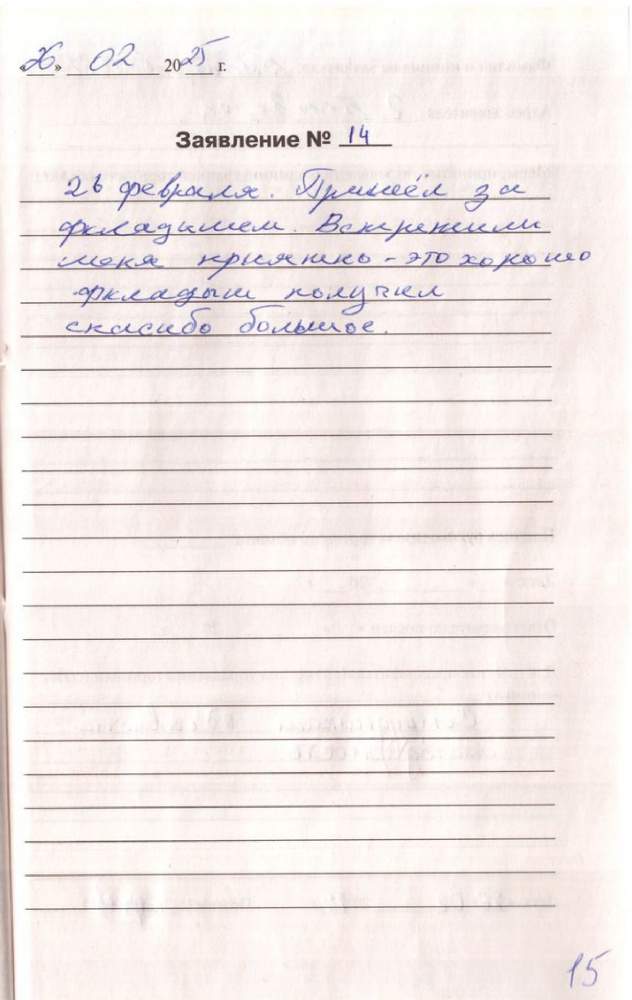 «26» 02 2025 г.
Заявление № 14
26 февраля. Пришёл за
вкладышем. Встретили
меня приятно - это хорошо
вкладыш получил
спасибо большое.
15